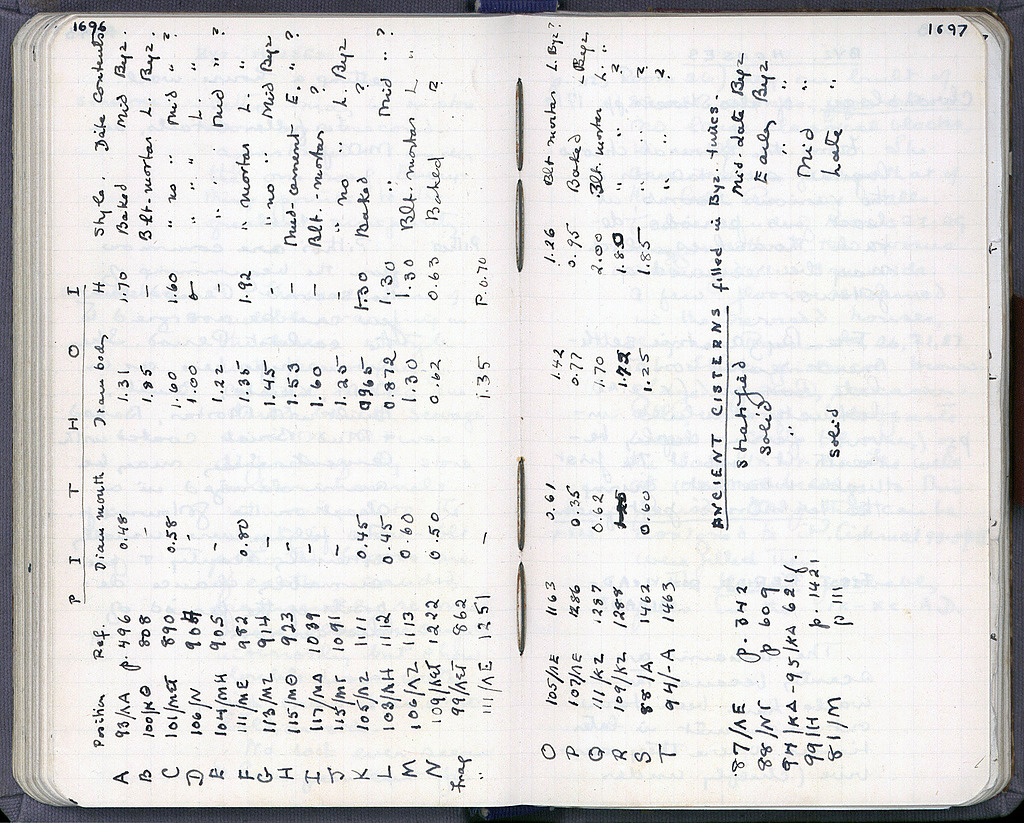 1696
P I T H O I
Position Ref Diam mouth Diam body H Style. Date contents
A 93/ΛΑ p. 496 0.48 1.31 1.70 Baked Mid Byz
B 100/KΘ 808 - 1.85 - Blt-mortar L. Byz.
C 101/ΜΓ 890 0.58 1.60 1.60 " no " Mid " ?
D 106/N 904 - 1.00 - " " " L. " ?
E 104/MH 905 - 1.22 - " " " Mid " ?
F 111/ME 982 0.80 1.35 1.92 " mortar L. "
G 113/MZ 914 - 1.45 - " no " Mid Byz
H 115/MΘ 923 - 1.53 - Mud cement E. " ?
I 117/MΔ 1039 - 1.60 - Blt. mortar ?
J 115/MΓ 1091 - 1.25 - " no " L. Byz
K 105/ΛZ 1111 0.45 0.965 1.30 Baked ?
L 103/ΛH 1112 0.45 1.872 1.30 " Mid " ?
M 106/ΛZ 1113 0.60 1.30 1.30 Blt-mortar L "
N 109/ΛΣΤ 1222 0.50 0.62 0.63 Baked ?
Frag 99/ΛΣΤ 862
" 111/ΛE 1251 - 1.35 P. 0.70
1697
O 105/ΛE 1163 0.61 1.42 1.26 Blt mortar L. Byz?
P 107/ΛE 1286 0.35 0.77 0.95 Baked L Byz.
Q 111/KZ 1287 0.62 1.70 2.00 Blt mortar L. "
R 109/KZ 1288 1.72 1.80 " " ?
S 88/Λ 1462 0.60 1.25 .85 " " ?
T 94/-Λ 1463 " ?
ANCIENT CISTERNS filled in Byz. times.
87/ΛE p. 342 Stratified Mid date Byz
88/NΓ p 609 Solid Early Byz
94/KA-95/KA 621 f. "
99/H p 1421 Mid "
81/M p 111 Solid Late "